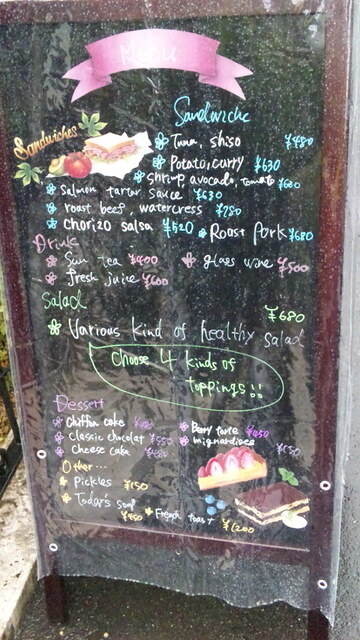 Menu
Sandwiche
Sandwiches
Tuna, shiso ¥480
Potato, curry ¥630
Shrimp, avocado, tomato ¥600
Salmon tartar sauce ¥630
roast beef, watercress ¥780
Chorizo salsa ¥520
Roast Pork ¥680
Drink
Sun tea ¥400
glass wine ¥500
fresh juice ¥600
Salad
¥680
Various kind of healthy salad
Choose 4 kinds of
toppings!!
Dessert
Chiffon cake
Berry tarte
classic chocolat ¥550
mignardises
Cheese cake
Other...
Pickles ¥150
Today's soup
French toast ¥1200